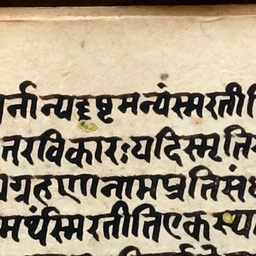 र्नान्यदृष्टमन्यंस्मरतीति
तरविकारःयदिस्मृति
ग्रहणानामप्रतिसं
मर्थंस्मरतीतिएकस्या